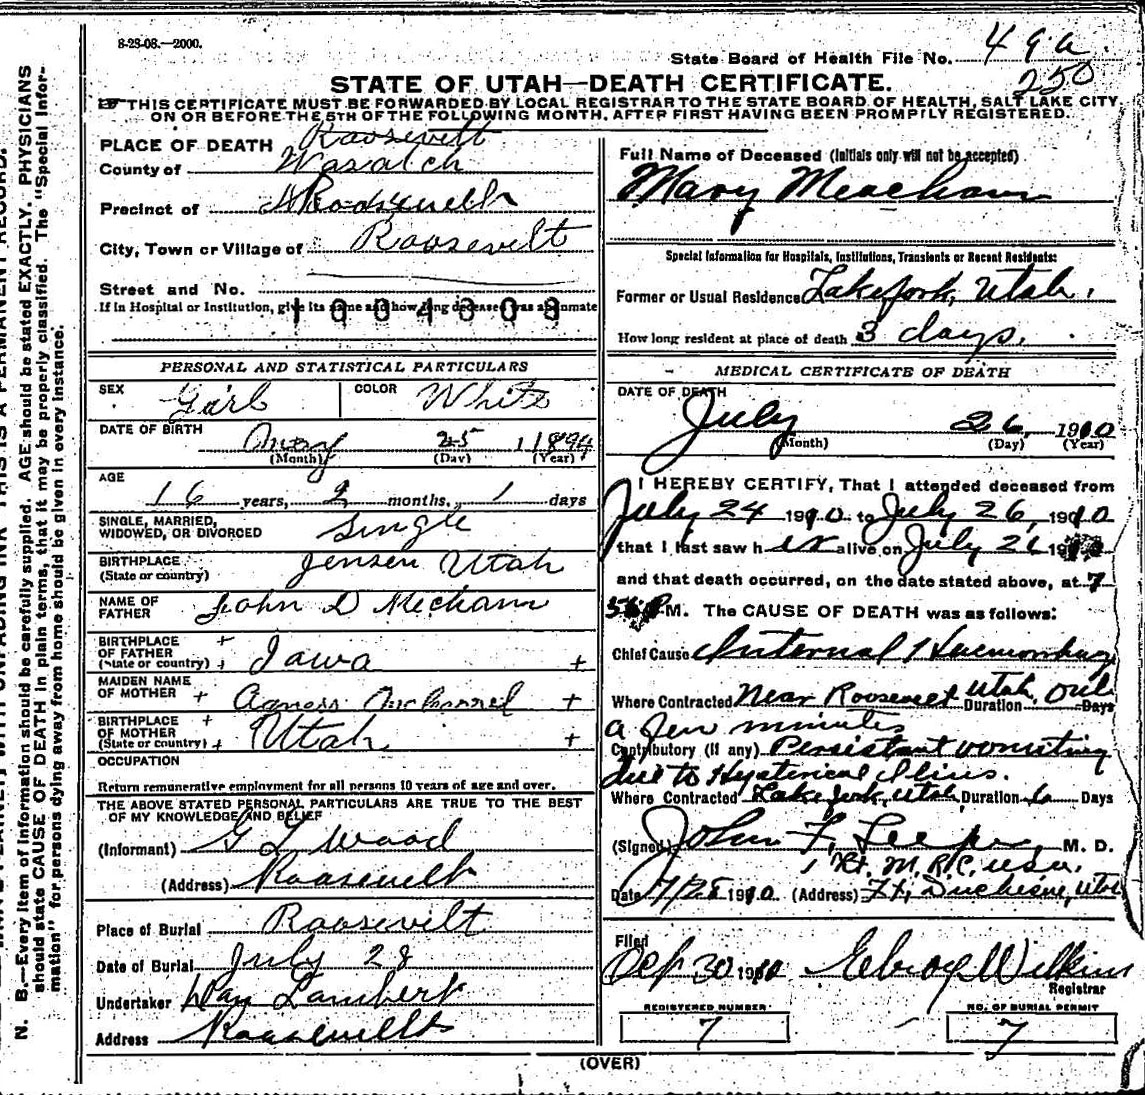 8-28-08.—2000.
State Board of Health File No. 49a
250
STATE OF UTAH—DEATH CERTIFICATE.
THIS CERTIFICATE MUST BE FORWARDED BY LOCAL REGISTRAR TO THE STATE BOARD OF HEALTH, SALT LAKE CITY,
ON OR BEFORE THE 5TH OF THE FOLLOWING MONTH, AFTER FIRST HAVING BEEN PROMPTLY REGISTERED.
N. B.—Every item of information should be carefully supplied. AGE should be stated EXACTLY. PHYSICIANS
should state CAUSE OF DEATH in plain terms, that it may be properly classified. The "Special Infor-
mation" for persons dying away from home should be given in every instance.
PLACE OF DEATH Roosevelt
County of Wasatch
Precinct of
City, Town or Village of Roosevelt
Street and No.
If in Hospital or Institution, give its name and how long deceased was an inmate
1004308
PERSONAL AND STATISTICAL PARTICULARS
SEX Girl COLOR White
DATE OF BIRTH 25 1894
(Month) (Day) (Year)
AGE
16 years, 2 months, 1 days
SINGLE, MARRIED,
WIDOWED, OR DIVORCED Single
BIRTHPLACE
(State or country) Jensen Utah
NAME OF
FATHER John D Mecham
BIRTHPLACE +
OF FATHER
(State or country) + Iowa +
MAIDEN NAME
OF MOTHER + Agness +
BIRTHPLACE +
OF MOTHER
(State or country) + Utah +
OCCUPATION
Return remunerative employment for all persons 10 years of age and over.
THE ABOVE STATED PERSONAL PARTICULARS ARE TRUE TO THE BEST
OF MY KNOWLEDGE AND BELIEF
(Informant) G L Wood
(Address) Roosevelt
Place of Burial Roosevelt
Date of Burial July 28
Undertaker Lambert
Address Roosevelt
Full Name of Deceased (Initials only will not be accepted)
Mary Meacham
Special Information for Hospitals, Institutions, Transients or Recent Residents:
Former or Usual Residence Lakefork, Utah.
How long resident at place of death 3 days.
MEDICAL CERTIFICATE OF DEATH
DATE OF DEATH
July 26, 1910
(Month) (Day) (Year)
I HEREBY CERTIFY, That I attended deceased from
July 24 1910 to July 26, 1910
that I last saw her alive on July 26 1910
and that death occurred, on the date stated above, at 7
P M. The CAUSE OF DEATH was as follows:
Chief Cause Internal Haemorrhage
Where Contracted Near Roosevelt Utah. Duration Only Days
a few minutes
Contributory (if any) Persistant vomiting
due to Hysterical
Where Contracted Lakefork, Utah, Duration 6 Days
(Signed) John F. Leeper M. D.
Lt. M.R.C. U.S.A.
Date 7/28 1910 (Address) Ft. Duchesne, Utah
Filed
Sep 30 1910 Elroy Wilkins
Registrar
REGISTERED NUMBER
7
NO. OF BURIAL PERMIT
7
(OVER)